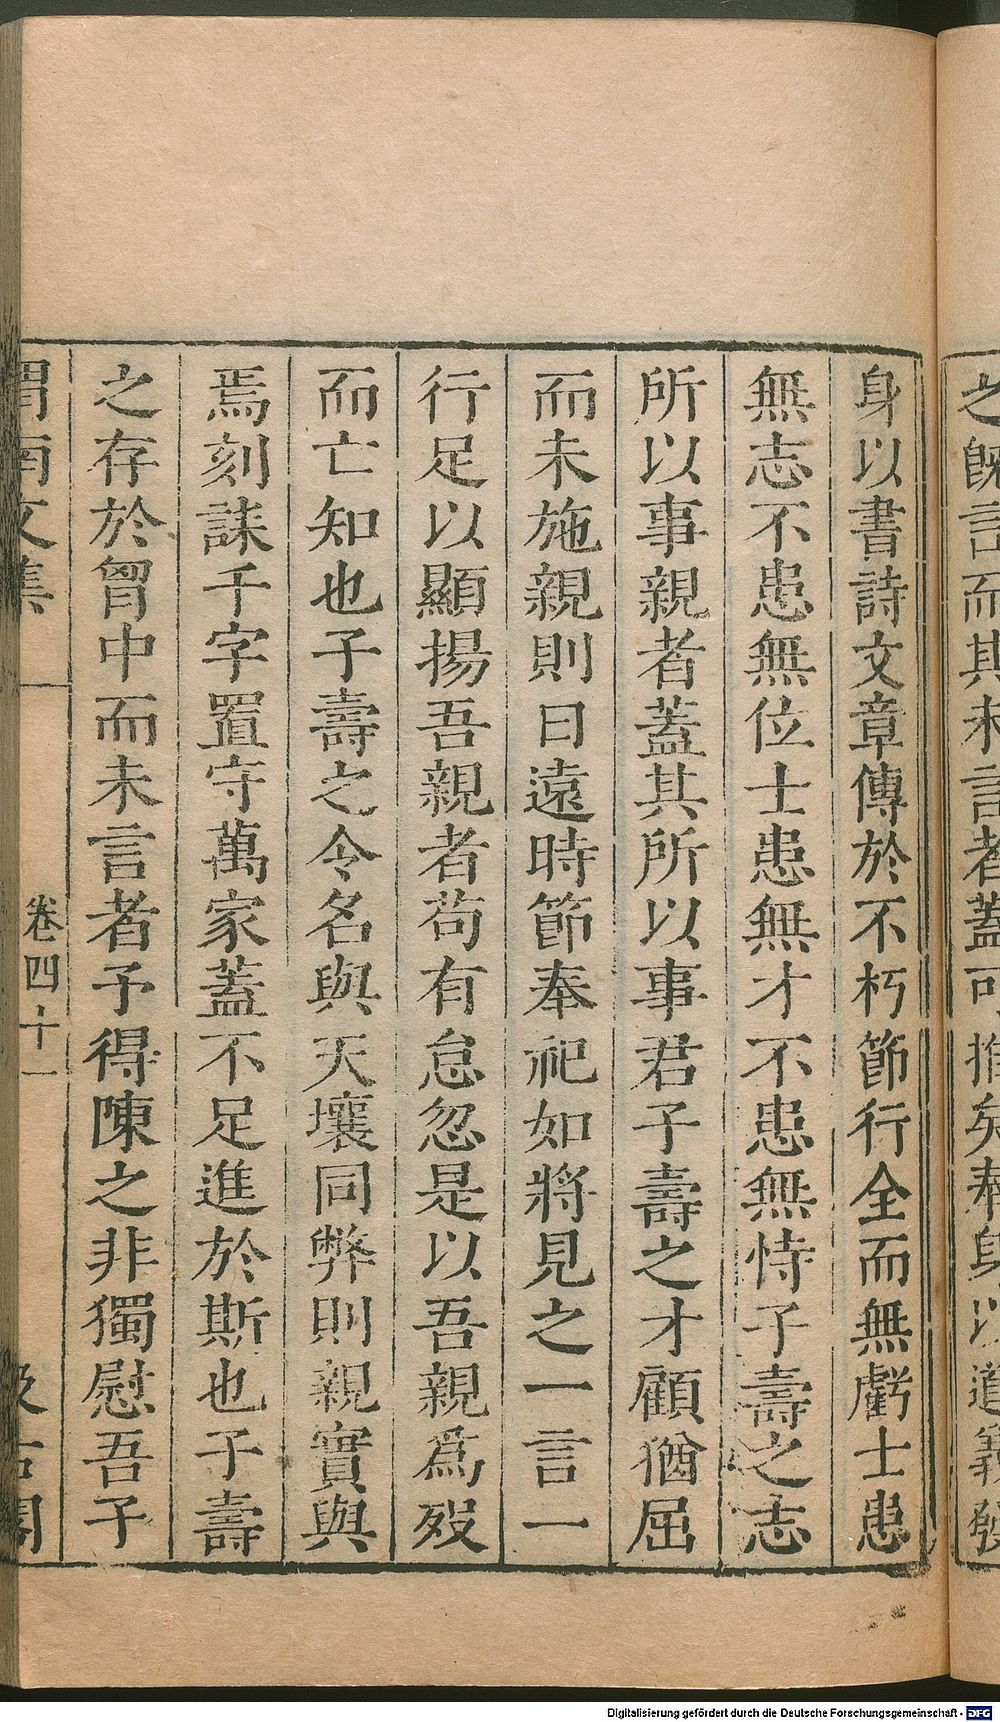 之既言而其未言者蓋可推矣奉身以道義發
身以書詩文章傳於不朽節行全而無虧士患
無志不患無位士患無才不患無恃子壽之志
所以事親者蓋其所以事君子壽之才顧猶屈
而未施親則曰遠時節奉祀如將見之一言一
行足以顯揚吾親者苟有怠忽是以吾親爲歿
而亡知也子壽之令名與天壤同弊則親實與
焉刻誄千字置守萬家蓋不足進於斯也子壽
之存於胷中而未言者予得陳之非獨慰吾子
渭南文集 卷四十一 汲古閣
Digitalisierung gefördert durch die Deutsche Forschungsgemeinschaft - DFG